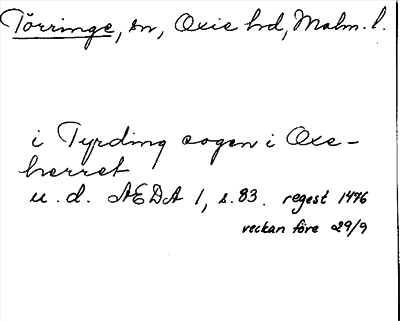 Törringe, sn, Oxie hd, Malm. l.
i Tyrding sogen i Oxe-
herret
u. d. AEDA 1, s. 83. regest 1476
veckan före 29/9